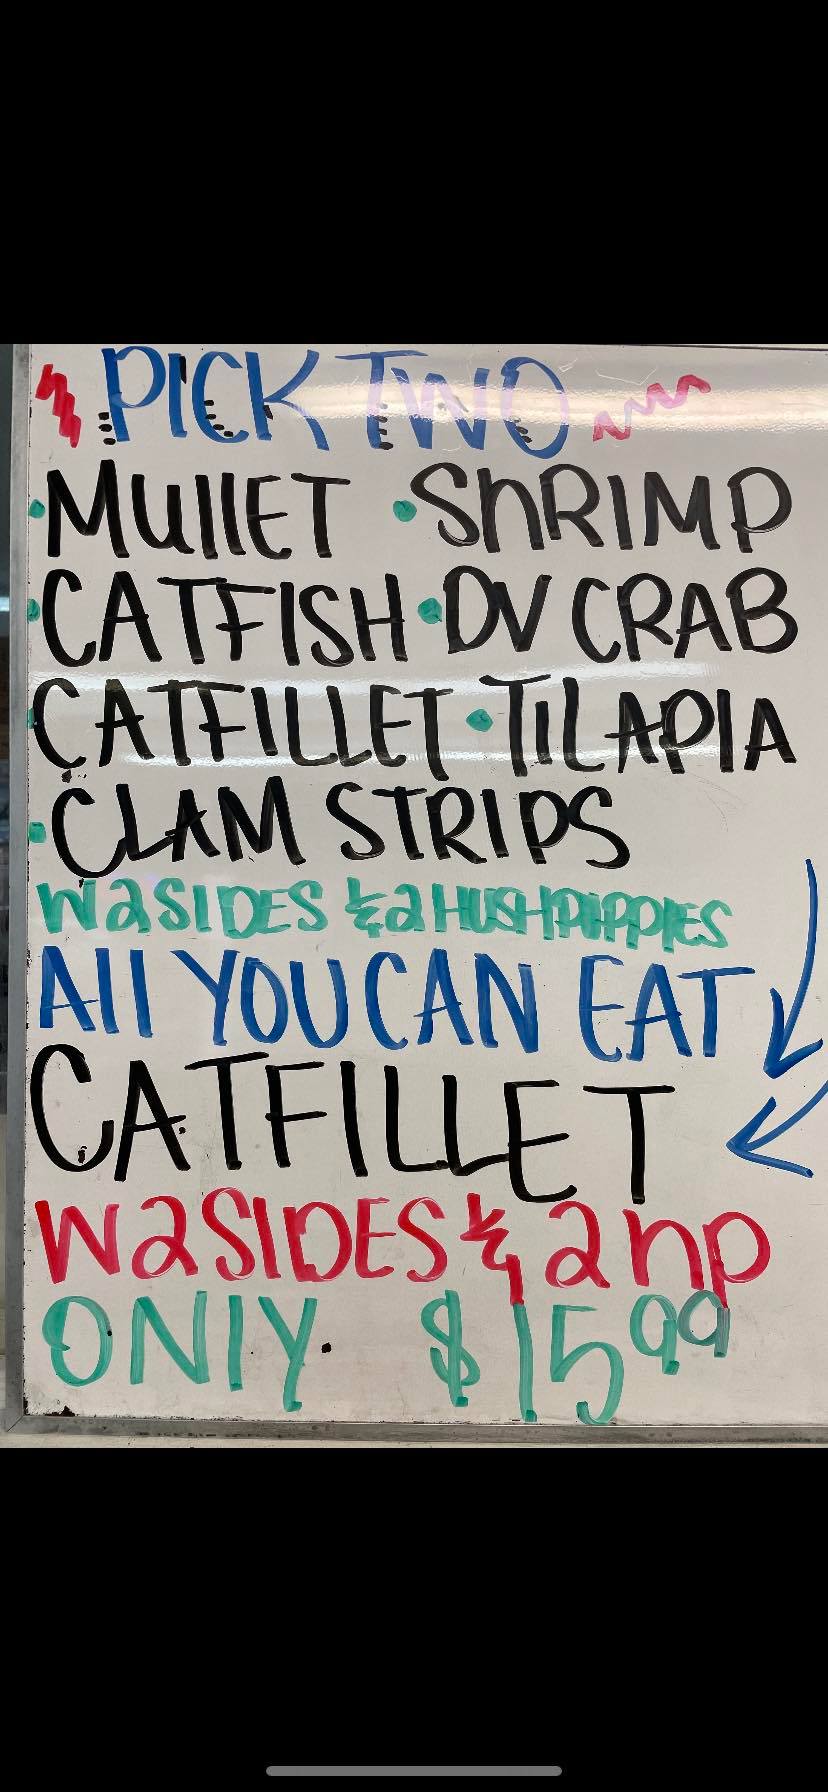 PICK TWO
• MUllET • ShRIMP
• CATFISH • DV CRAB
• CATFILLET • TILAPIA
• CLAM STRIPS
W 2 SIDES & 2 HUSHPUPPIES
All YOU CAN EAT
CATFILLET
W 2 SIDES & 2 hp
ONlY. $15 99